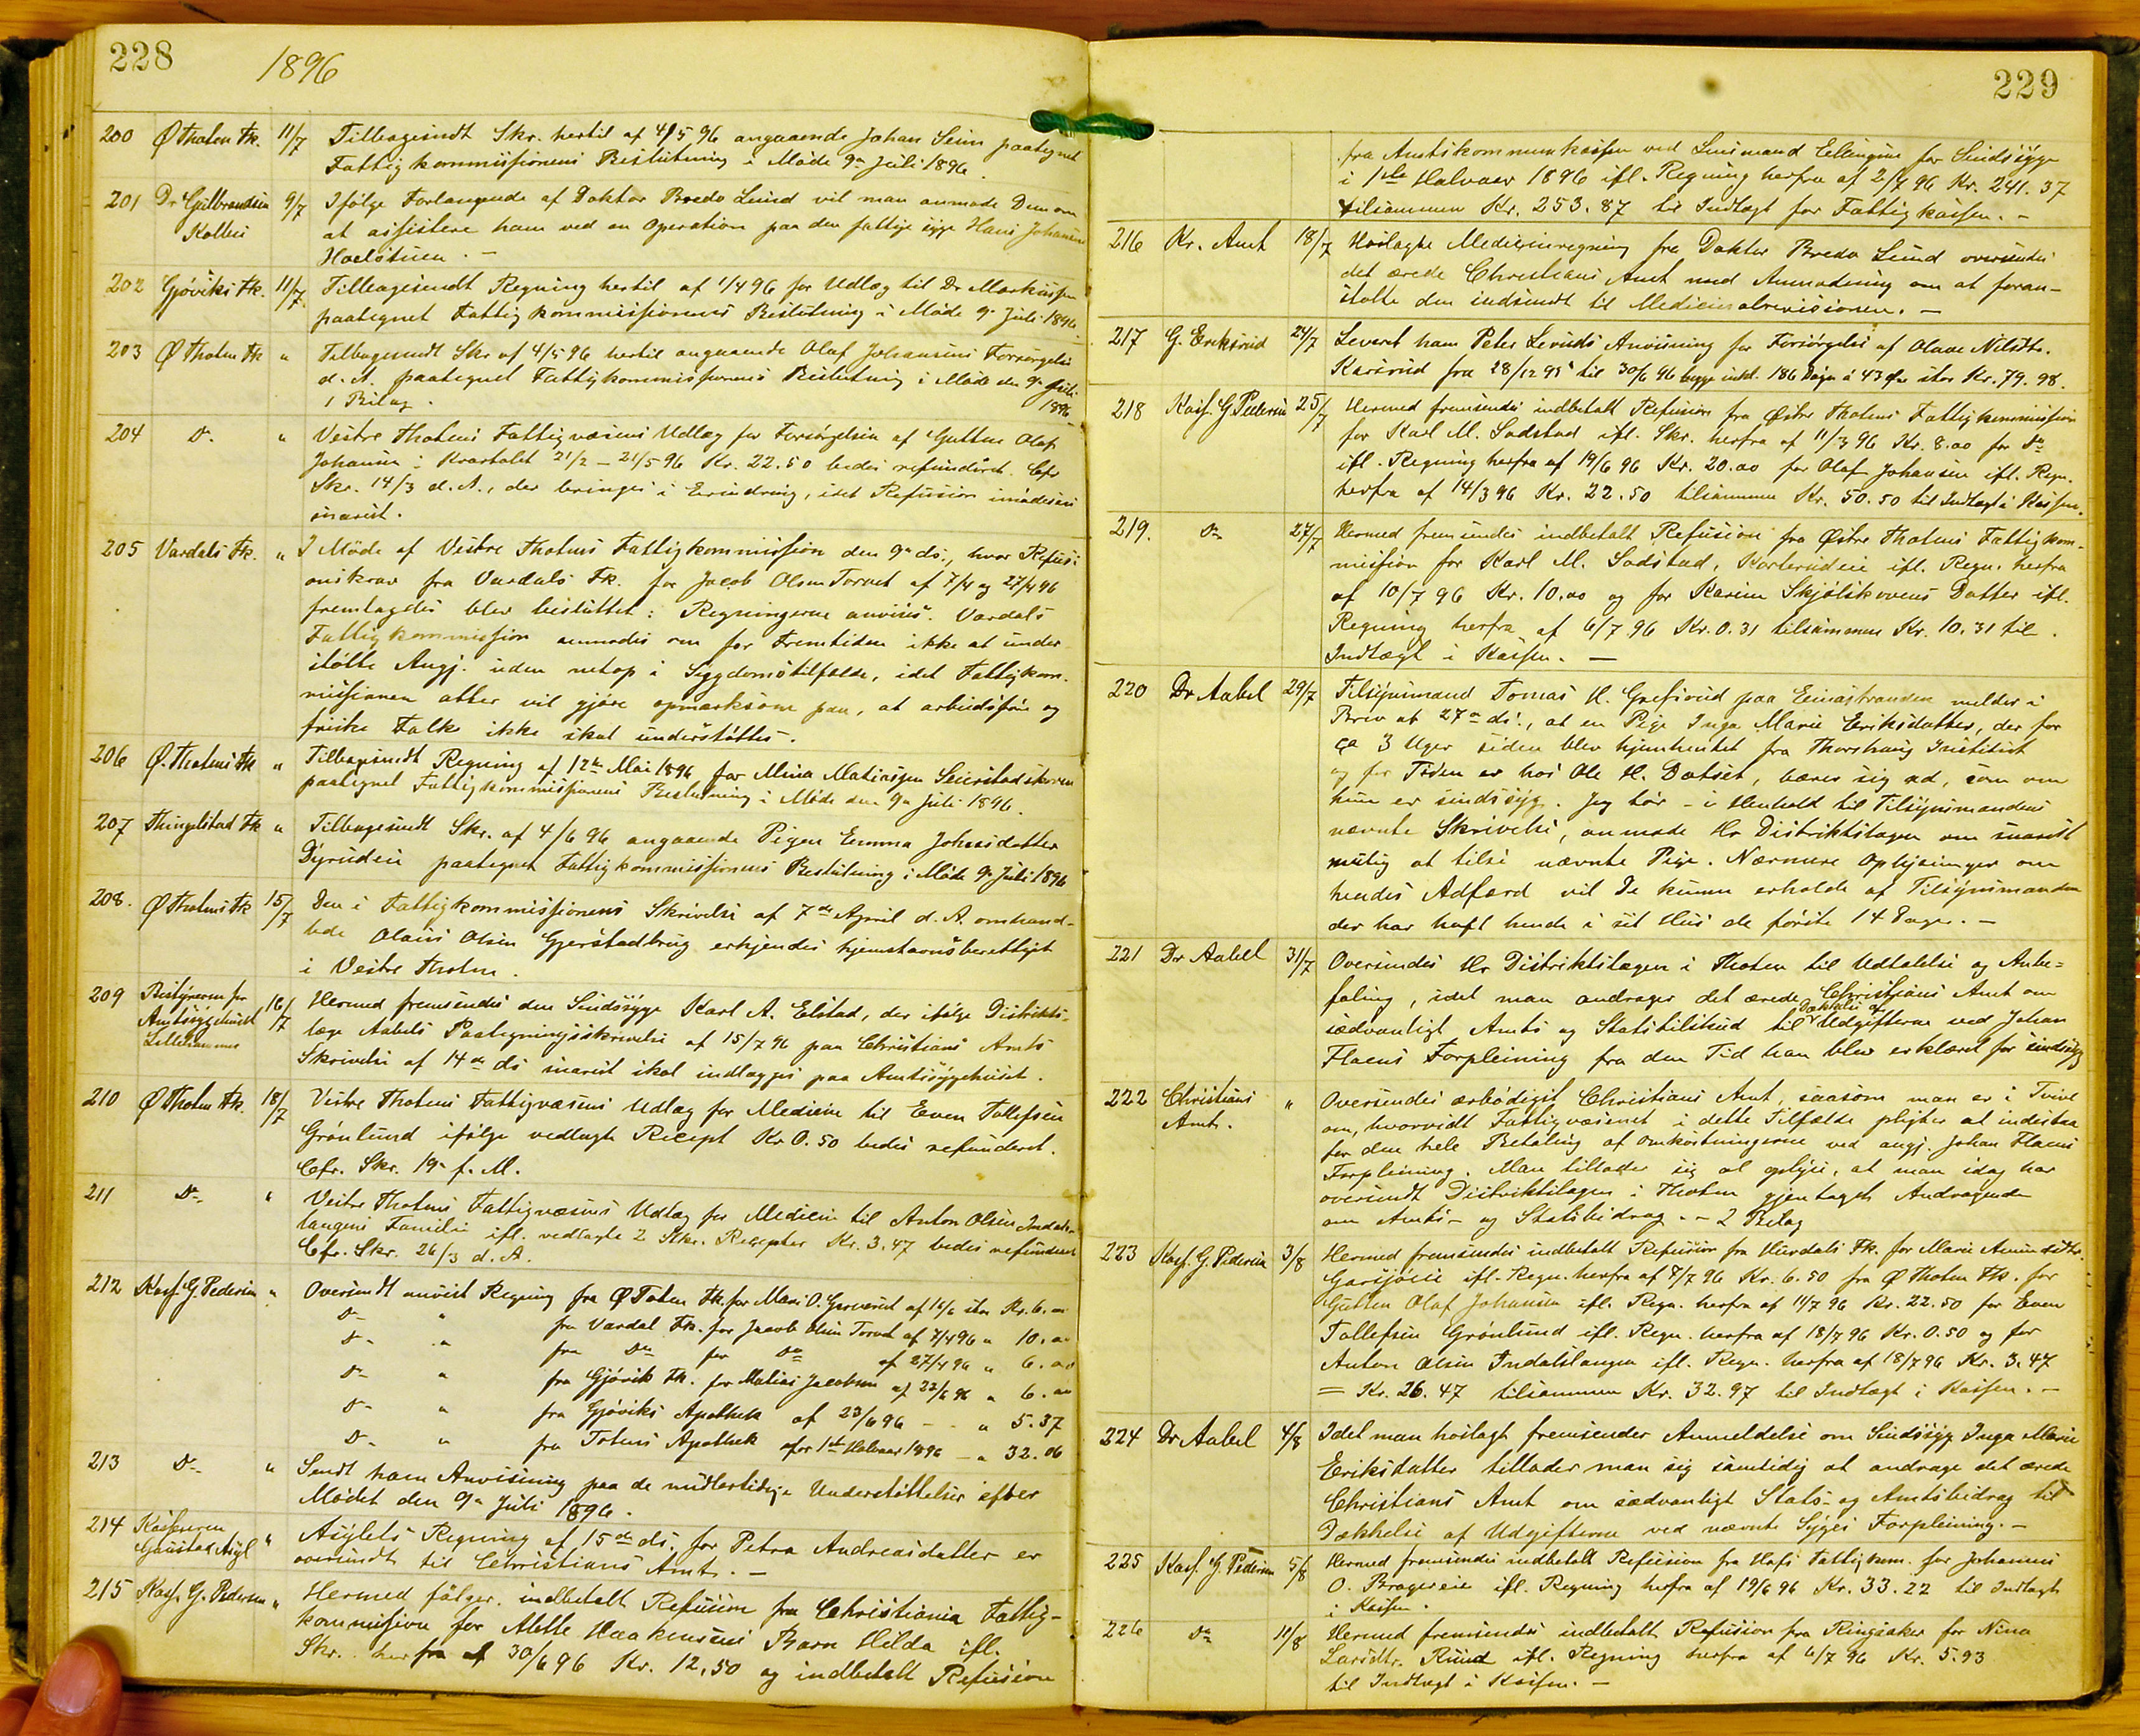 228
1896
200 Ø Thoten Fk. 11/7 Tilbagesendt Skr. hertil af 4/5 96 angaaende Johan Seim paategnet
Fattigkommissionens Beslutning i Møde 9de Juli 1896.
201 Dr Gulbrandsen 9/7 Ifølge Forlangende af Doktor Bredo Lund vil man anmode Dem om
Kolbu at assistere ham ved en Operation paa den fattige syge Hans Johansen
202 Gjøviks Fk. 11/7. Tilbagesendt Regning hertil af 1/4 96 for Udlæg til Dr Markussen
paategnet Fattigkommissionens Beslutning i Møde 9de Juli 1896.
203 Ø Thoten Fk " Tilbagesendt Skr af 4/5 96 hertil angaaende Olaf Johansens Forsørgelse
d. A. paategnet Fattigkommissionens Beslutning i Møde den 9de Juli
1 Bilag. 1896
204 Do. " Vestre Thotens Fattigvæsens Udlæg for Forsørgelsen af Gutten Olaf
Johansen i Kvartalet 21/2 - 21/5 96 Kr. 22.50 bedes refunderet. Cfr
Skr. 14/3 d. A., der bringes i Erindring, idet Refusion imødesees
snarest.
205 Vardals Fk. " I Møde af Vestre Thotens Fattigkommission den 9de ds., hvor Refusi-
onskrav fra Vardals Fk. for Jacob Olsen Torvet af 7/4 og 27/4 96
fremlagdes blev besluttet: Regningerne anvises. Vardals
Fattigkommission anmodes om for Fremtiden ikke at under-
støtte Angj. uden netop i Sygdomstilfælde, idet Fattigkom-
missionen atter vil gjøre opmærksom paa, at arbeidsføre og
friske Folk ikke skal understøttes.
206 Ø. Thotens Fk " Tilbagesendt Regning af 12te Mai 1896 for Mina Matiasen
paategnet Fattigkommissionens Beslutning i Møde den 9de Juli 1896.
207 Thingelstad Fk " Tilbagesendt Skr. af 4/6 96 angaaende Pigen Emma Johansdatter
paategnet Fattigkommissionens Beslutning i Møde 9de Juli 1896
208. Ø Thotens Fk 15/7 Den i Fattigkommissionens Skrivelse af 7de April d. A. omhand-
lede Olaus Olsen Gjerstadbrug erkjendes hjemstavnsberettiget
i Vestre Thoten.
209 Bestyreren for 16/7 Hermed fremsendes den Sindssyge Karl A. Elstad, der ifølge Distrikts-
Amtssygehuset læge Aabels Paategningsskrivelse af 15/7 96 paa Christians Amts
Lillehammer Skrivelse af 14de ds snarest skal indlægges paa Amtssygehuset.
210 Ø Thoten Fk. 18/7 Vestre Thotens Fattigvæsens Udlæg for Medicin til Even Tollefsen
Grønlund ifølge vedlagte Recept Kr 0.50 bedes refunderet.
Cfr. Skr. 19de f. M.
211 Do. " Vestre Thotens Fattigvæsens Udlæg for Medicin til Anton Olsen Indals-
langens Familie ifl. vedlagte 2 Stkr. Recepter Kr. 3.47 bedes refunderet
Cfr. Skr. 26/3 d. A.
212 Kass. G. Pedersen " Oversendt anvist Regning fra Ø Toten Fk. for Mari O. af 16/6 stor Kr. 6.00
Do " fra Vardal Fk. for Jacob Olsen Torvet af 7/4 96 " 10.00
Do " fra Do for Do af 27/4 96 " 6.00
Do " fra Gjøvik Fk. for Matias Jacobsen af 23/6 96 " 6.00
Do " fra Gjøviks Apothek af 23/6 96 - " 5.37
Do " fra Totens Apothek for 1ste Halvaar 1896 - " 32.06
213 Do. " Sendt ham Anvisning paa de midlertidige Understøttelser efter
Mødet den 9de Juli 1896.
214 Kasseren " Asylets Regning af 15de ds. for Petra Andreasdatter er
Gaustad Asyl oversendt til Christians Amt. -
215 Kass. G. Pedersen " Hermed følger indbetalt Refusion fra Christiania Fattig-
kommission for Mette Haakensens Barn Hilda ifl.
Skr. herfra af 30/6 96 Kr. 12,50 og indbetalt Refusion
229
fra Amtskommunekassen ved Lensmand for Sindssyge
i 1ste Halvaar 1896 ifl. Regning herfra af 2/7 96 Kr. 241.37
tilsammen Kr. 253.87 til Indtægt for Fattigkassen. -
216 Kr. Amt 18/7 Hoslagte Medicinregning fra Doktor Bredo Lund oversendes
det ærede Christians Amt med Anmodning om at foran-
stalte den indsendt til Medicinalrevisionen. -
217 G. Eriksrud 24/7 Leveret ham Peter Anvisning for Forsørgelse af Olave Nilsdtr.
Karsrud fra 28/12 95 til 30/6 96 begge inkl. 186 Døgn á 43 Øre stor Kr. 79.98.
218 Kass. G Pedersen 25/7 Hermed fremsendes indbetalt Refusion fra Østre Thotens Fattigkommission
for Karl M. Sodstad ifl. Skr. herfra af 11/3 96 Kr. 8.00 for Do
ifl. Regning herfra af 19/6 96 Kr. 20.00 for Olaf Johansen ifl. Regn.
herfra af 14/3 96 Kr. 22.50 tilsammen Kr. 50.50 til Indtægt i Kassen.
219. Do 27/7 Hermed fremsendes indbetalt Refusion fra Østre Thotens Fattigkom-
mission for Karl M. Sodstad, ifl. Regn. herfra
af 10/7 96 Kr. 10.00 og for Karine Skjølskovens Datter ifl.
Regning herfra af 6/7 96 Kr. 0.31 tilsammen Kr. 10.31 til
Indtægt i Kassen. -
220 Dr Aabel 29/7 Tilsynsmand Tomas H. Grefsrud paa Einastranden melder i
Brev af 27de ds., at en Pige Inga Marie Eriksdatter, der for
ca 3 Uger siden blev hjemhentet fra Thorshaug Institut
og for Tiden er hos Ole H. bærer sig ad, som om
hun er sindssyg. Jeg tør - i Henhold til Tilsynsmandens
nævnte Skrivelse, anmode Hr Distriktslægen om snarest
mulig at tilse nævnte Pige. Nærmere Oplysninger om
hendes Adfærd vil De kunne erholde af Tilsynsmanden
der har havt hende i sit Hus de første 14 Dager. -
221 Dr Aabel 31/7 Oversendes Hr Distriktslægen i Thoten til Udtalelse og Anbe-
faling, idet man andrager det ærede Christians Amt om
sædvanligt Amts og Statstilskud til Dækkelse af Udgifterne ved Johan
Flaens Forpleining fra den Tid han blev erklæret for sindssyg
222 Christians " Oversendes ærbødigst Christians Amt, saasom man er i Tvivl
Amt. om, hvorvidt Fattigvæsenet i dette Tilfælde pligter at indestaa
for den hele Betaling af Omkostningerne ved angj. Johan Flaens
Forpleining. Man tillader sig at oplyse, at man idag har
oversendt Distriktslægen i Thoten gjentaget Andragende
om Amts- og Statsbidrag. - 2 Bilag
223 Kass. G. Pedersen 3/8 Hermed fremsendes indbetalt Refusion fra Hurdals Fk. for Marie
ifl. Regn. herfra af 7/7 96 Kr. 6.50 fra Ø Thoten Fk. for
Gutten Olaf Johansen ifl. Regn. herfra af 11/7 96 Kr. 22.50 for Even
Tollefsen Grønlund ifl. Regn. herfra af 18/7 96 Kr. 0.50 og for
Anton Olsen Indalslangen ifl. Regn. herfra af 18/7 96 Kr. 3.47
= Kr. 26.47 tilsammen Kr. 32.97 til Indtægt i Kassen. -
224 Dr Aabel 4/8 Idet man hoslagt fremsender Anmeldelse om Sindssyg Inga Marie
Eriksdatter tillader man sig samtidig at andrage det ærede
Christians Amt om sædvanligt Stats- og Amtsbidrag til
Dækkelse af Udgifterne ved nævnte Syges Forpleining. -
225 Kass. G. Pedersen 5/8 Hermed fremsendes indbetalt Refusion fra Hofs Fattigkom. for Johannes
O. ifl. Regning herfra af 19/6 96 Kr. 33.22 til Indtægt
i Kassen.
226 Do 11/8 Hermed fremsendes indbetalt Refusion fra Ringsaker for Nina
Larsdtr. Rund ifl. Regning herfra af 6/7 96 Kr. 5.93
til Indtægt i Kassen. -